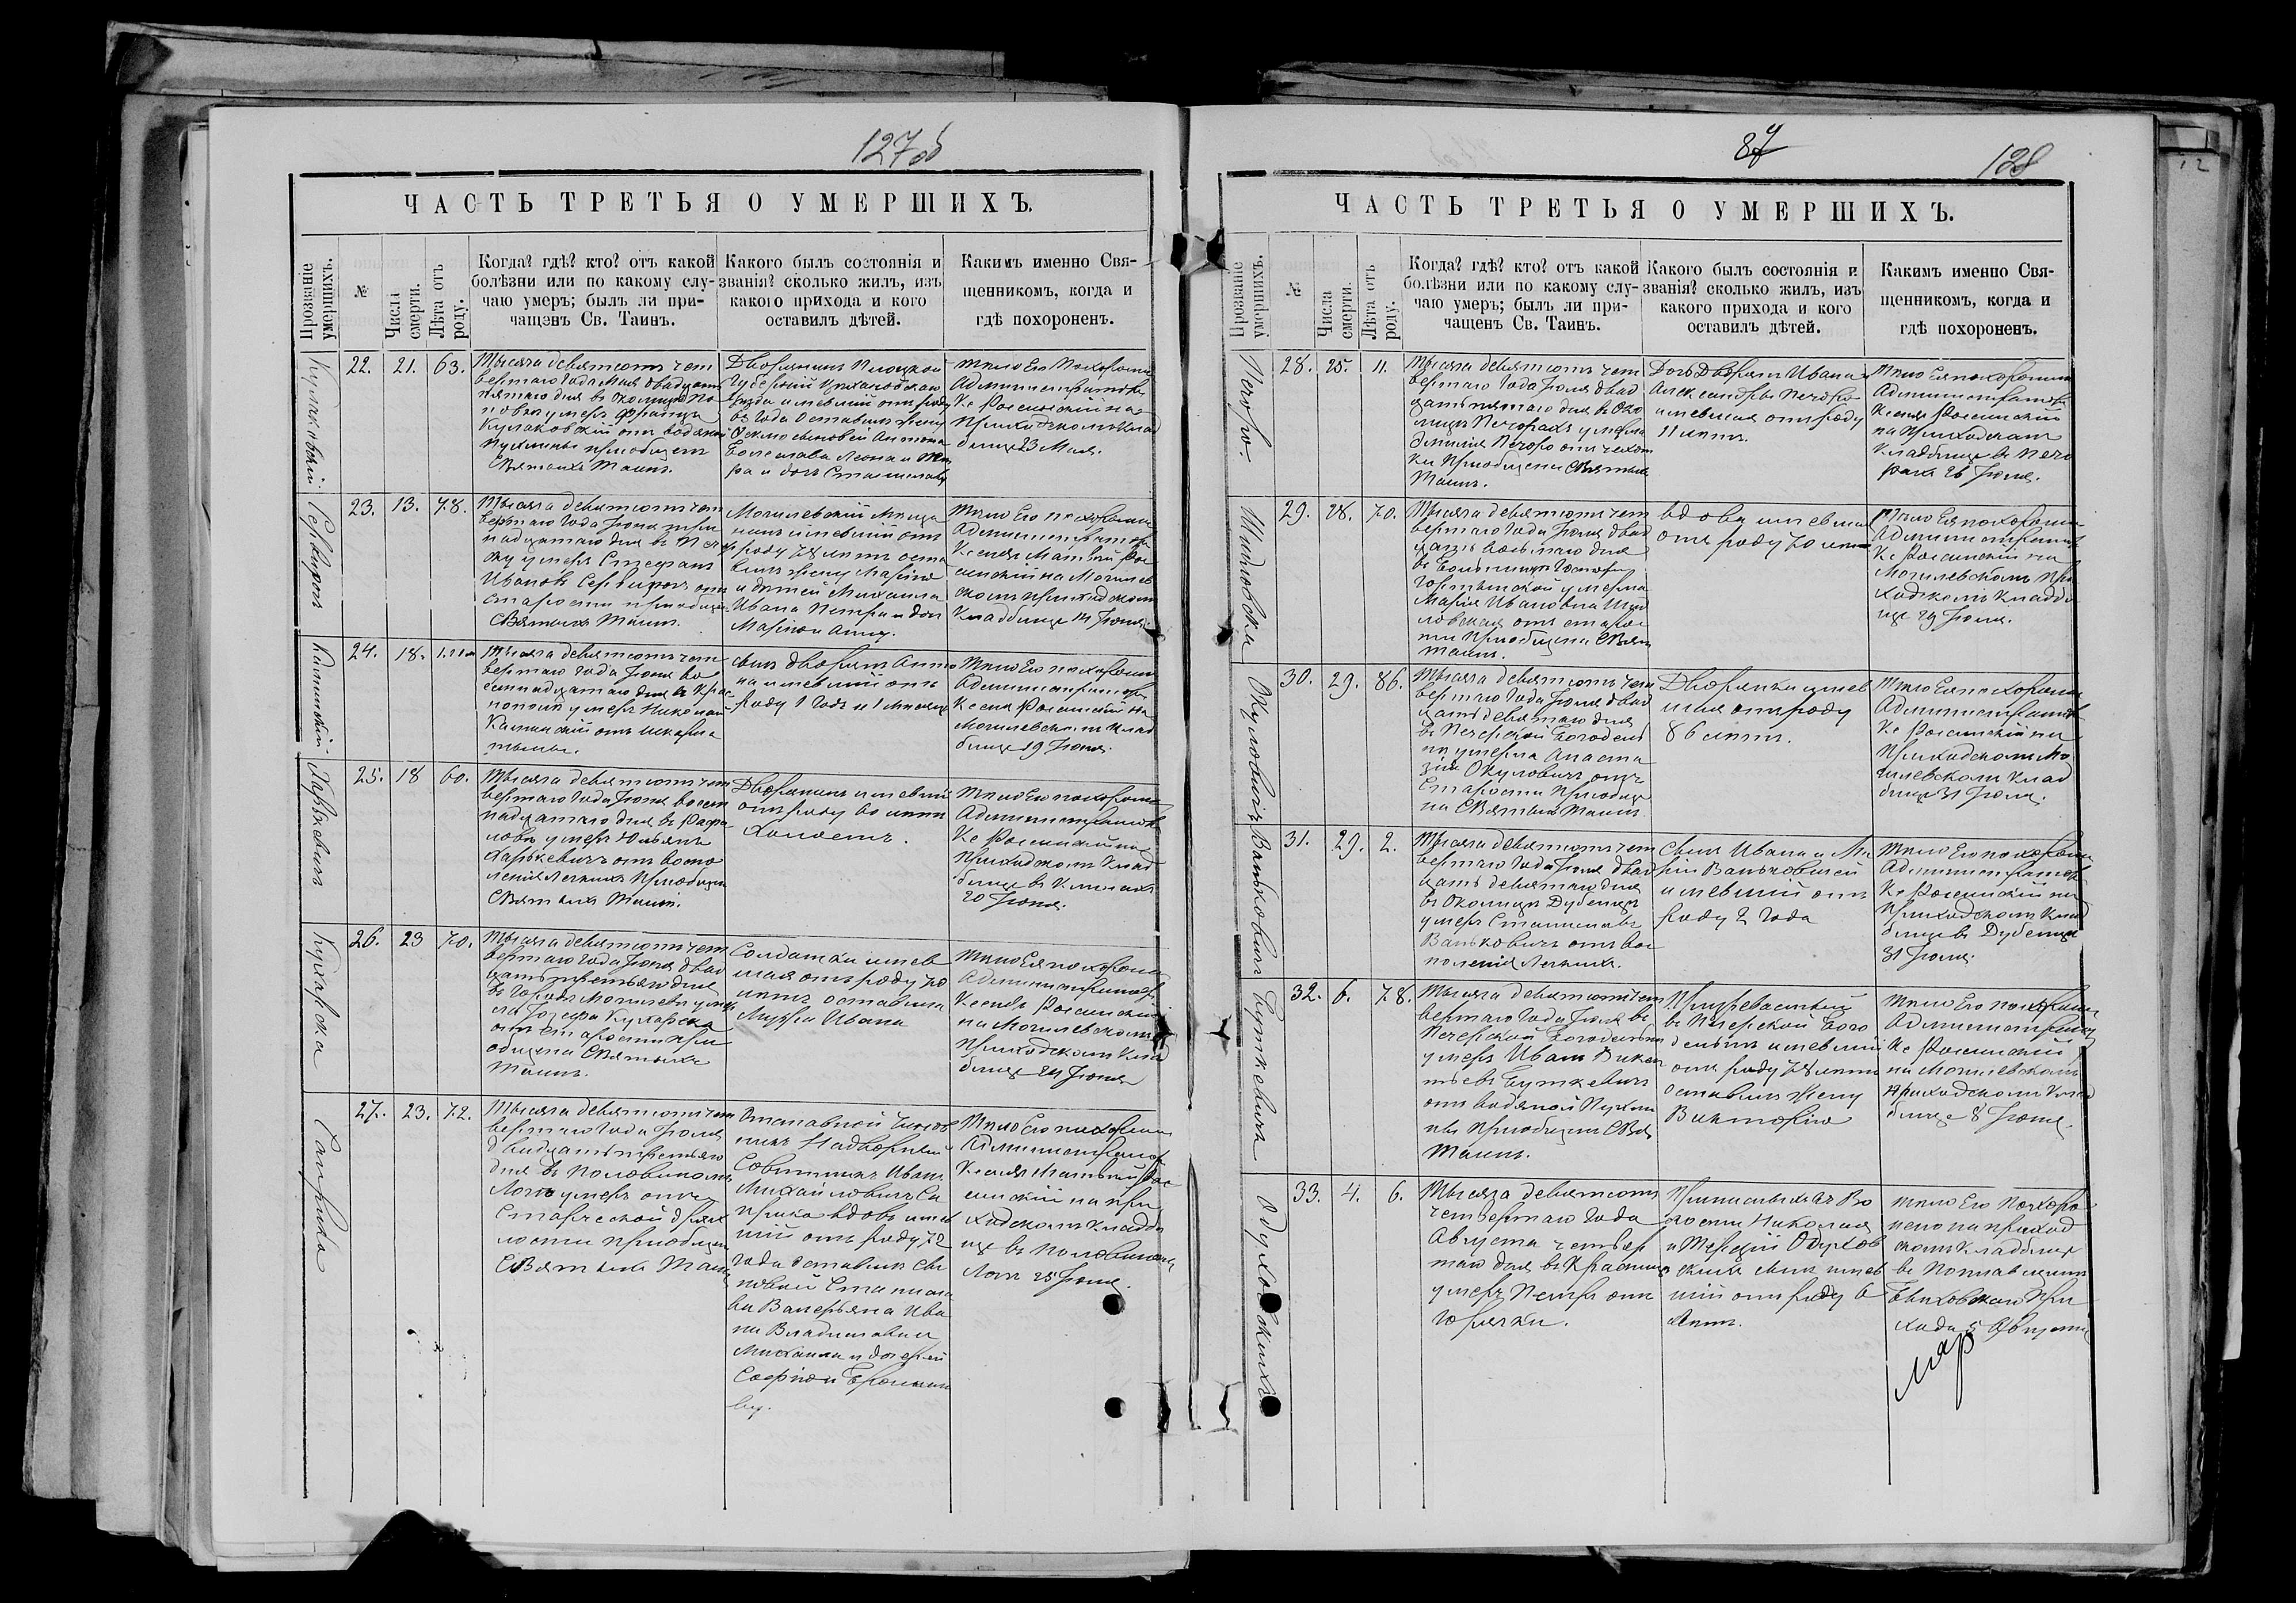 127 об
ЧАСТЬ ТРЕТЬЯ О УМЕРШИХЪ.
Прозваніе умершихъ.
№
Числа смерти.
Лѣта отъ роду.
Когда? гдѣ? кто? отъ какой
болѣзни или по какому слу-
чаю умеръ; былъ ли при-
чащенъ Св. Таинъ.
Какого былъ состоянія и
званія? сколько жилъ, изъ
какого прихода и кого
оставилъ дѣтей.
Какимъ именно Свя-
щенникомъ, когда и
гдѣ похороненъ.
Кулаковскій
22. 21. 63.
Тысяча девятьсотъ чет
вертаго года Мая двадцать
умеръ Францъ
Кулаковскій отъ водяной
пухлины приобщенъ
Святыхъ Таинъ.
Дворянинъ
имевшій отъ роду
года оставилъ жену
сыновей Антона
Болеслава Леона и
и дочь Станиславу
Тѣло Его Похоронено
Администраторъ
Кс Росинскій на
Приходскомъ Клад
бищѣ 23 Мая.
Сервиронъ
23. 13. 78.
Тысяча девятьсотъ чет
вертаго года Іюня три
надцатаго дня въ
умеръ Стефанъ
Ивановъ Сервиронъ отъ
старости приобщенъ
Святыхъ Таинъ.
Могилевскій Мѣща
нинъ имевшій отъ
роду 78 летъ оста
вилъ жену Марію
и дѣтей Михаила
Ивана Петра и доч
Марію и Анну.
Тѣло Его похоронено
Администраторъ
Ксендзъ Матвѣй Рос
инскій на Могилев
скомъ приходскомъ
Кладбищѣ 14 Іюня.
Калинскій
24. 18.
Тысяча девятьсотъ чет
вертаго года Іюня во
семнадцатаго дня въ Крас
умеръ Николай
Калинскій отъ шкарла
тыны.
сынъ дворянъ Анто
на имевшій отъ
роду 1 годъ и 1 Месяцъ
Тѣло Его похоронено
Администраторъ
Ксендзъ Росинскій на
Могилевскомъ Клад
бищѣ 19 Іюня.
Харкевичъ
25. 18 60.
Тысяча девятьсотъ чет
вертаго года Іюня восем
надцатаго дня въ Рафа
лова умеръ Юльянъ
Харькевичъ отъ воспа
ленія Легкихъ Приобщенъ
Святыхъ Таинъ.
Дворянинъ имевшій
отъ роду 60 летъ
Холостъ.
Тѣло Его похоронено
Администраторъ
Кс Росинскій на
Приходскомъ Клад
бищѣ въ
20 Іюня.
Кухарска
26. 23 70.
Тысяча девятьсотъ чет
вертаго года Іюня двад
цать третьяго дня
въ городѣ Могилевѣ умер
ла Іозефа Кухарска
отъ старости при
общена Святыхъ
Таинъ.
Солдатка имев
шая отъ роду 70
летъ оставила
Мужа Ивана
Тѣло Ея похоронено
Администраторъ
Ксендзъ Росинскій
на Могилевскомъ
Приходскомъ Клад
бищѣ 24 Іюня
Саприка
27. 23. 72.
Тысяча девятьсотъ чет
вертаго года Іюня
двадцать третьяго
дня въ Половинномъ
Логу умеръ отъ
Старческой дрях
лости приобщенъ
Святыхъ Таинъ
Отставной Чинов
никъ Надворный
Советникъ Иванъ
Михайловичъ Са
прика вдовъ имев
шій отъ роду 72
года оставилъ сы
новей Станисла
ва Валерьяна Ива
на Владислава и
Михаила и дочерей
Софію и Брониславу
Тѣло Его похоронено
Администраторъ
Ксендзъ Матвѣй Рос
инскій на При
ходскомъ кладби
щѣ въ Половинномъ
Логу 25 Іюня.
87
128
ЧАСТЬ ТРЕТЬЯ О УМЕРШИХЪ.
Прозваніе умершихъ.
№
Числа смерти.
Лѣта отъ роду.
Когда? гдѣ? кто? отъ какой
болѣзни или по какому слу-
чаю умеръ; былъ ли при-
чащенъ Св. Таинъ.
Какого былъ состоянія и
званія? сколько жилъ, изъ
какого прихода и кого
оставилъ дѣтей.
Какимъ именно Свя-
щенникомъ, когда и
гдѣ похороненъ.
Печоро.
28. 25. 11.
Тысяча девятьсотъ чет
вертаго года Іюля двад
цать пятаго дня въ Око
лицѣ Печорахъ умерла
Эмилія Печоро отъ чахот
ки Приобщена Святыхъ
Таинъ.
Дочь Дворянъ Ивана и
Александры Печоро
имевшая отъ роду
11 летъ.
Тѣло Ея похоронено
Администраторъ
Ксендзъ Росинскій
на Приходскомъ
Кладбищѣ въ Печо
рахъ 26 Іюля.
Шидловска
29. 28. 70.
Тысяча девятьсотъ чет
вертаго года Іюля двад
цать восьмаго дня
въ Больницѣ
умерла
Марія Ивановна Шид
ловская отъ старос
ти Приобщена Святыхъ
Таинъ.
вдова имевшая
отъ роду 70 летъ
Тѣло Ея похоронено
Администраторъ
Кс Росинскій на
Могилевскомъ При
ходскомъ Кладби
щѣ 29 Іюля.
Окуловичъ
30. 29. 86.
Тысяча девятьсотъ чет
вертаго года Іюля двад
цать девятаго дня
въ Печерской Богодель
нѣ умерла Анаста
зія Окуловичъ отъ
Старости Приобще
на Святыхъ Таинъ
Дворянка имев
шая отъ роду
86 летъ.
Тѣло Ея похоронено
Администраторъ
Кс Росинскій на
Приходскомъ Мо
гилевскомъ Клад
бищѣ 31 Іюля.
Ваньковичъ
31. 29. 2.
Тысяча девятьсотъ чет
вертаго года Іюля двад
цать девятаго дня
въ Околицѣ Дубенцѣ
умеръ Станиславъ
Ваньковичъ отъ вос
паленія Легкихъ.
Сынъ Ивана и Ма
ріи Ваньковичей
имевшій отъ
роду 2 года
Тѣло Его похоронено
Администраторъ
Кс Росинскій на
Приходскомъ Клад
бищѣ въ Дубенцѣ
31 Іюля.
Буткевичъ
32. 6. 78.
Тысяча девятьсотъ чет
вертаго года Іюля въ
Печерской Богодельнѣ
умеръ Иванъ Викен
тьевъ Буткевичъ
отъ водяной Пухли
ны Приобщенъ Свя
Таинъ.
Призреваемый
въ Печерской Бого
дельнѣ имевшій
отъ роду 78 летъ
оставилъ Жену
Викторію
Тѣло Его похоронено
Администраторъ
Кс Росинскій
на Могилевскомъ
Приходскомъ Клад
бищѣ 8 Іюля.
Одуховскихъ
33. 4. 6.
Тысяча девятьсотъ
четвертаго года
Августа четвер
таго дня въ Красницѣ
умеръ Петръ отъ
горячки.
Николая
и Терезіи Одухов
скихъ сынъ имев
шій отъ роду 6
летъ.
Тѣло Его Похоро
нено на приход
скомъ Кладбищѣ
въ
Быховскаго При
хода 5 Августа